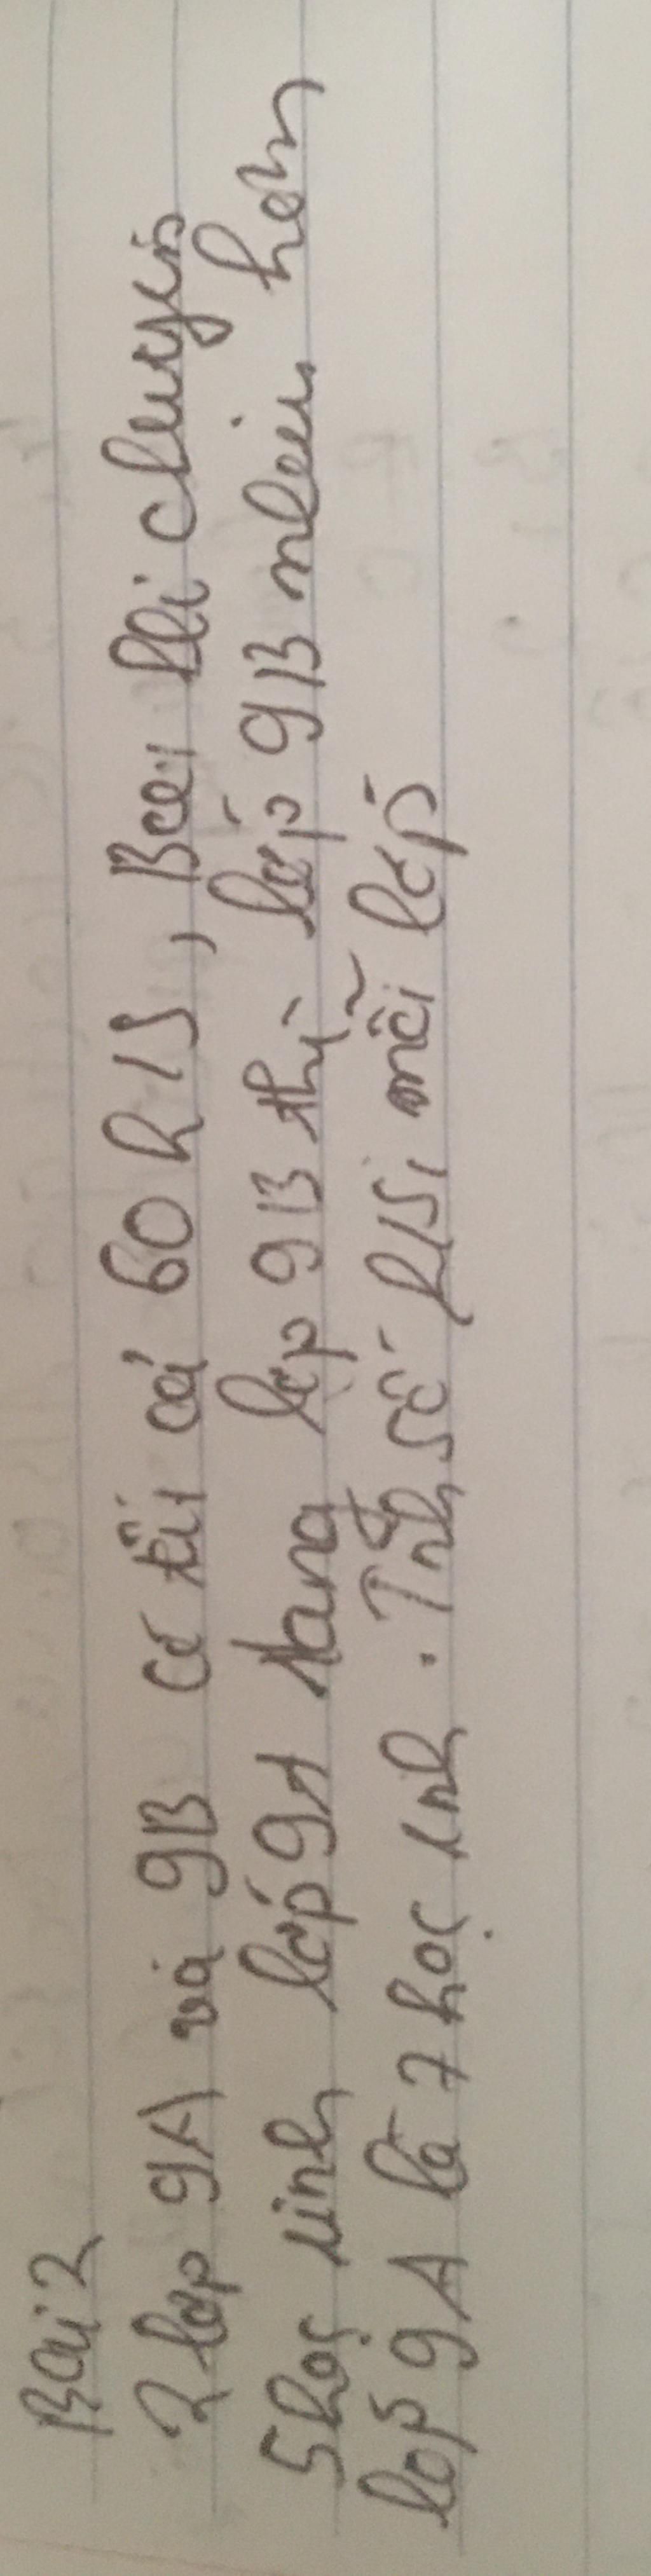 Bài 2
2 lớp 9A và 9B có tất cả 60 h/s, sau khi chuyển
5 học sinh lớp 9A sang lớp 9B thì lớp 9B nhiều hơn
lớp 9A là 7 học sinh. Tính số h/s mỗi lớp